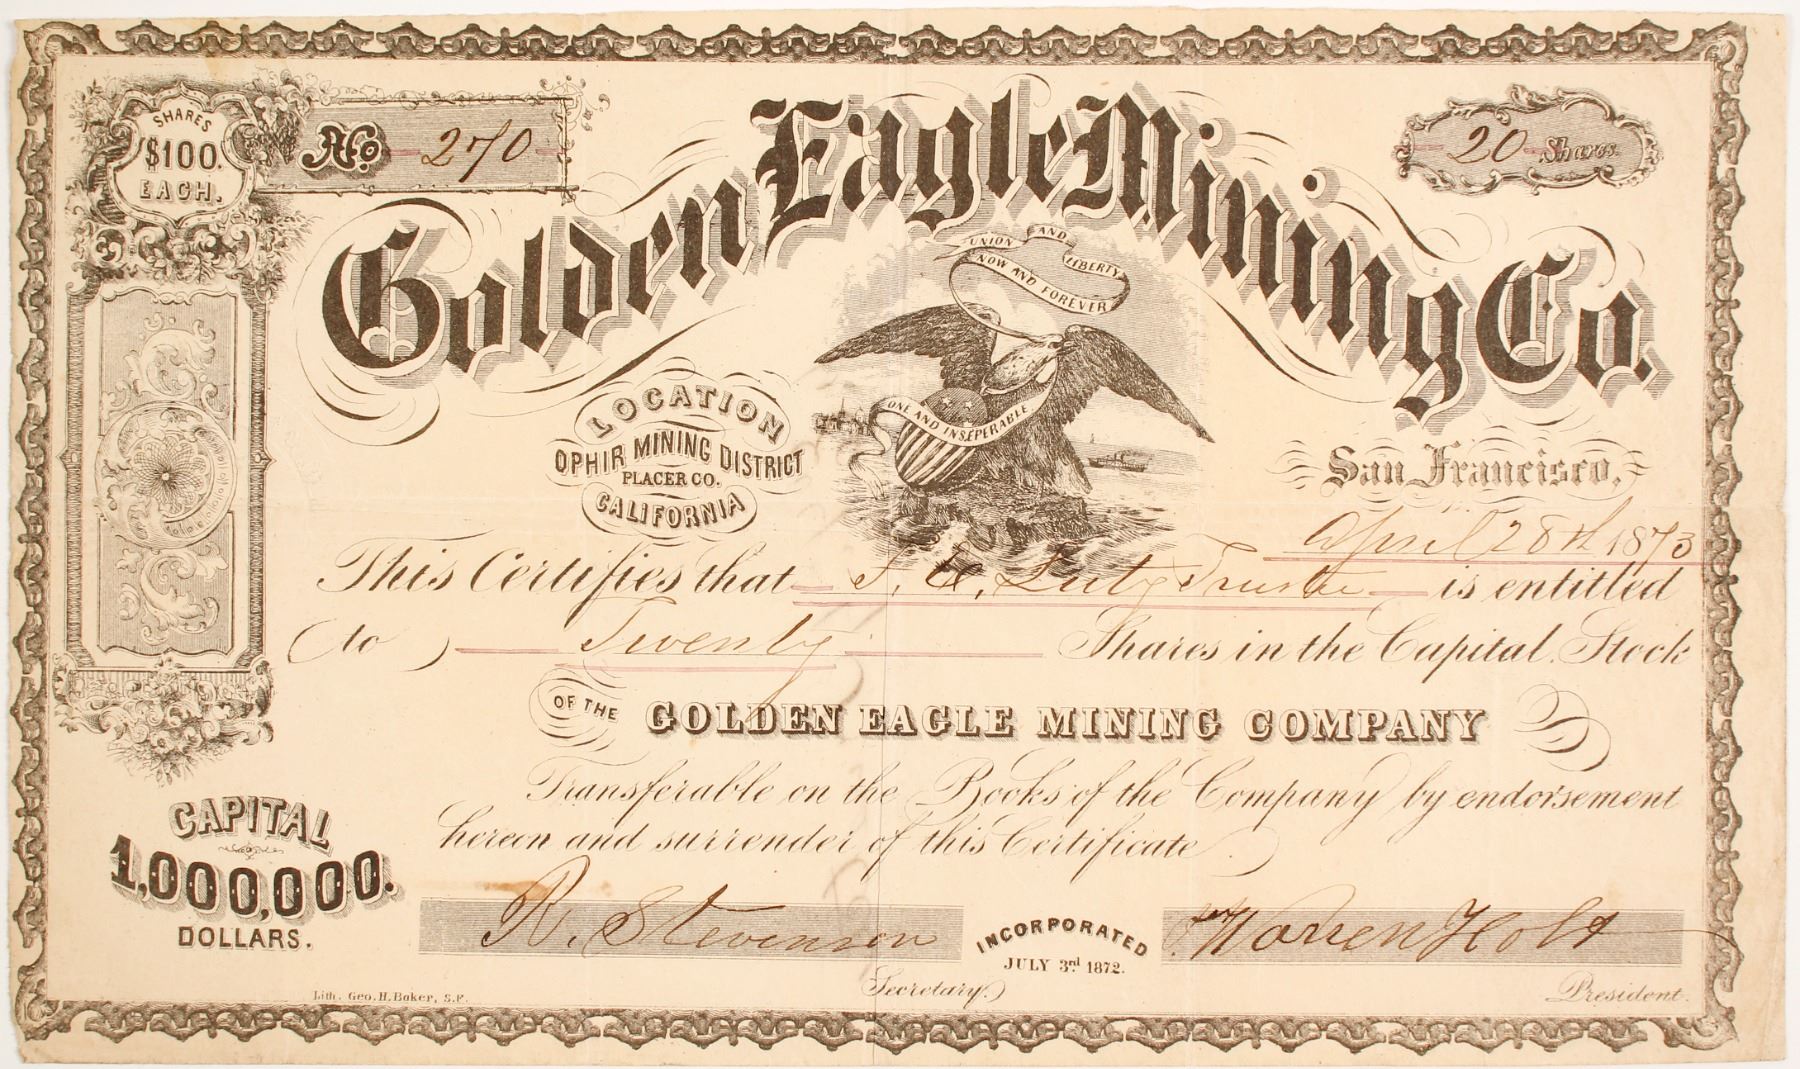 SHARES
$100.
EACH.
No. 270
20 Shares.
Golden Eagle Mining Co.
UNION AND LIBERTY
NOW AND FOREVER
ONE AND INSEPERABLE
LOCATION
OPHIR MINING DISTRICT
PLACER CO.
CALIFORNIA
San Francisco,
April 28th 1873
This Certifies that Trustee is entitled
to Twenty Shares in the Capital Stock
OF THE GOLDEN EAGLE MINING COMPANY
Transferable on the Books of the Company by endorsement
hereon and surrender of this Certificate.
CAPITAL
1,000,000.
DOLLARS.
R. Stevenson
Secretary.
INCORPORATED
JULY 3rd 1872.
Warren Holt
President.
Lith. Geo. H. Baker, S.F.